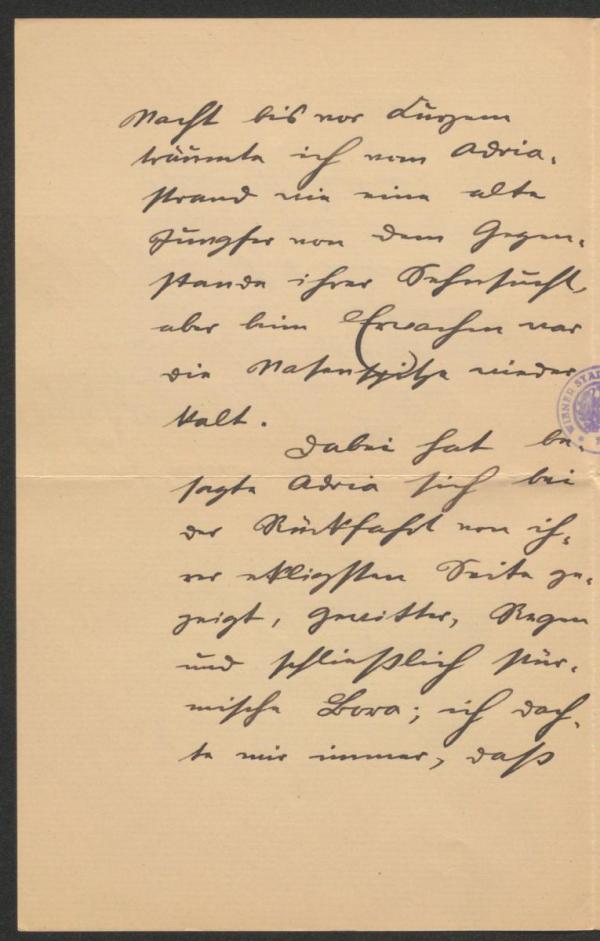 Nacht bis vor Kurzem
träumte ich vom Adria-
strand wie eine alte
Jungfer von dem Gegen-
stande ihrer Sehnsucht,
aber beim Erwachen war
die Nasenspitze wieder
kalt.
Dabei hat be-
sagte Adria sich bei
der Rückfahrt von ih-
rer ekligsten Seite ge-
zeigt, Gewitter, Regen
und schließlich stür-
mische Bora; ich dach-
te mir immer, daß
WIENER STA